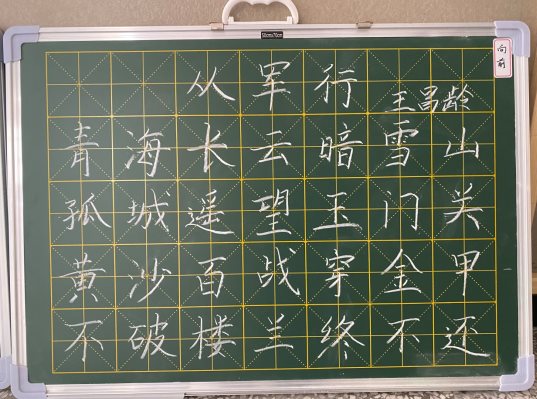 从军行
王昌龄
青海长云暗雪山
孤城遥望玉门关
黄沙百战穿金甲
不破楼兰终不还
向前